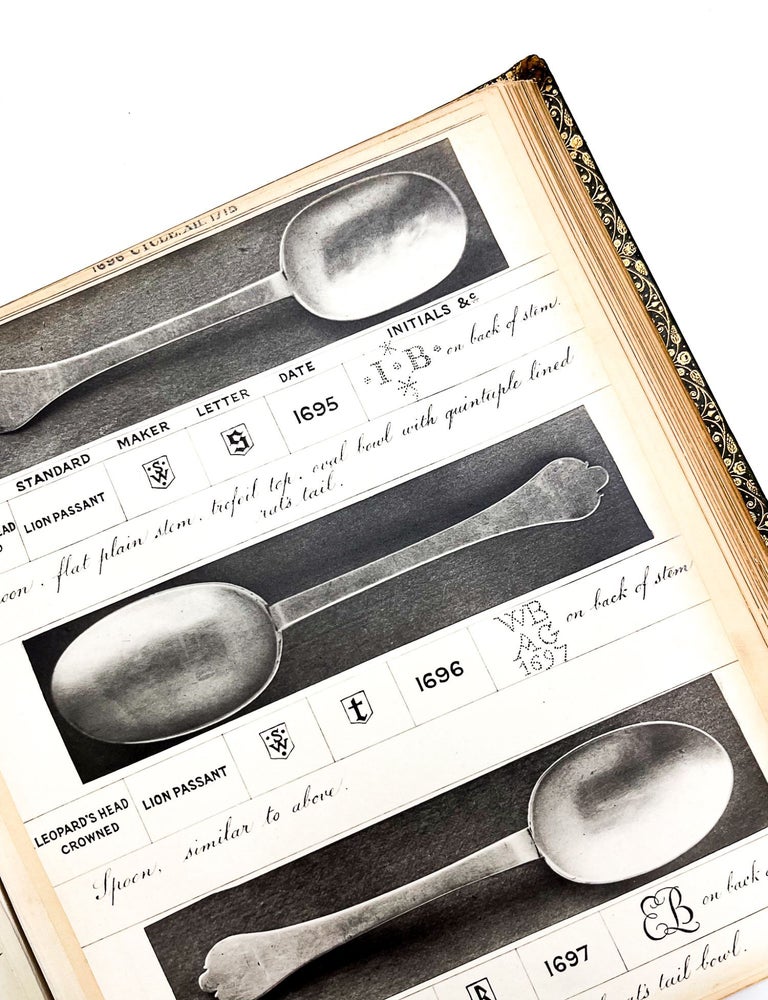 STANDARD MAKER LETTER DATE INITIALS &c
LION PASSANT SW S 1695 I·B· on back of stem.
flat plain stem, trefoil top, oval bowl with quintuple lined
rats tail.
LEOPARD'S HEAD CROWNED LION PASSANT SW t 1696 WB AG 1697 on back of stem
Spoon, similar to above.
1697 EB on back
rats tail bowl.